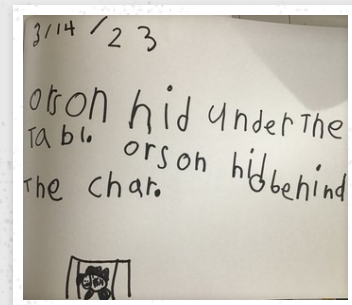 3/14/23
orson hid under The
Tabl. orson hid behind
The char.